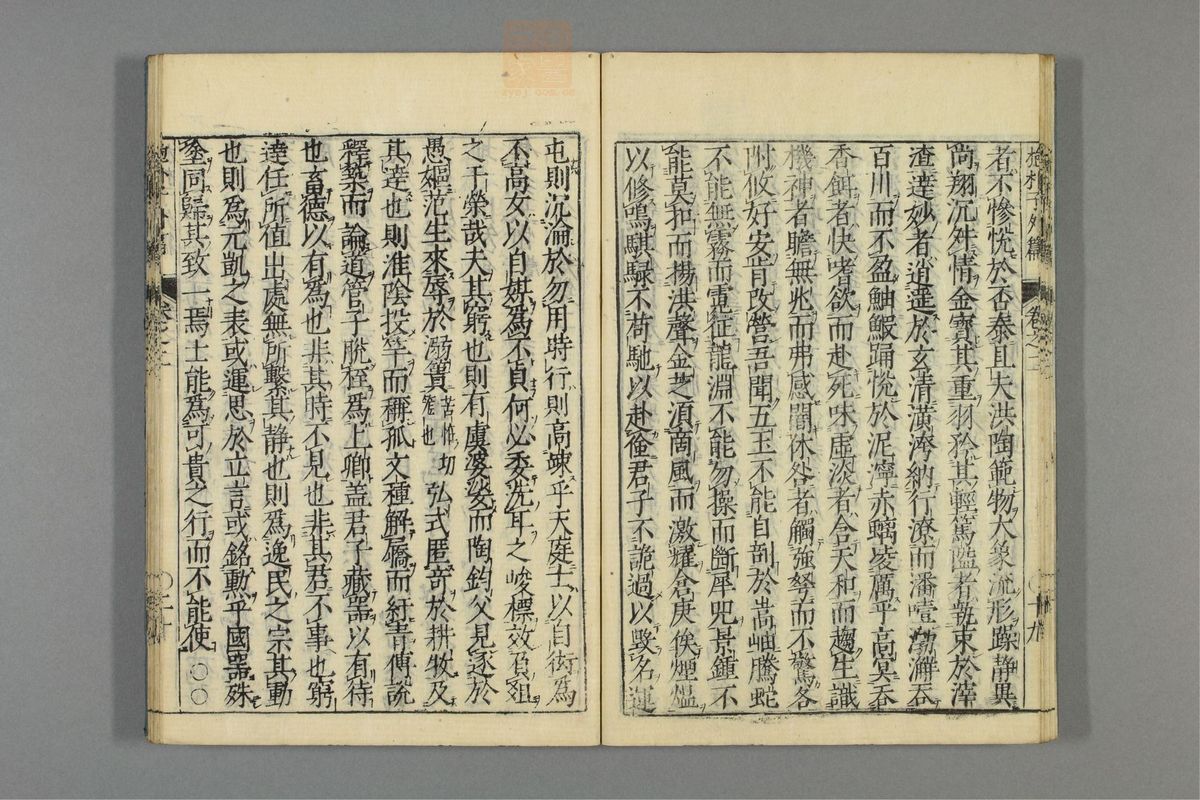 抱朴子外篇 卷之二 〇十九
者不慘恱於否泰且夫洪陶範物大象流形躁静異
尚翔沉舛情金寳其重羽矜其輕篤隘者執束於滓
渣達妙者逍遥於玄清潢洿納行潦而潘噎渤澥吞
百川而不盈鮋鰕踊恱於泥濘赤螭凌厲乎高冥吞
香餌者快嗜欲而赴死味虛淡者含天和而趨生識
機神者瞻無兆而弗惑闇休咎者觸強弩而不驚各
附攸好安肯改營吾聞五玉不能自剖於嵩岫騰蛇
不能無霧而電征龍淵不能勿操而斷犀兕景鍾不
能莫扣而揚洪聲金芝湏商風而激耀倉庚俟煙熅
以修鳴騏騄不苟馳以赴儉君子不詭過以毁名運
屯則沉淪於勿用時行則高竦乎天庭士以自衒爲
不高女以自媒爲不貞何必委洗耳之峻標效負爼
之干榮哉夫其窮也則有虞婆娑而陶鈞父見逐於
愚嫗范生來辱於溺簀弘式匿竒於耕牧及
苦恠切
籠也
其達也則淮陰投竿而稱孤文種解屩而紆青傅説
釋築而論道管子脱桎爲上卿盖君子藏噐以有待
也畜德以有爲也非其時不見也非其君不事也窮
達任所值出處無所繫其静也則爲逸民之宗其動
也則爲元凱之表或運思於立言或銘勲乎國噐殊
塗同歸其致一焉士能爲可貴之行而不能使〇〇
抱朴子外篇 卷之二 〇二十